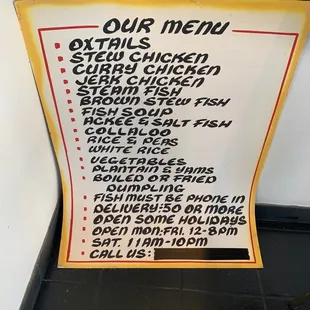 OUR MENU
OXTAILS
STEW CHICKEN
CURRY CHICKEN
JERK CHICKEN
STEAM FISH
BROWN STEW FISH
FISH SOUP
ACKEE & SALT FISH
COLLALOO
RICE & PEAS
WHITE RICE
VEGETABLES
PLANTAIN & YAMS
BOILED OR FRIED
DUMPLING
FISH MUST BE PHONE IN
DELIVERY:50 OR MORE
OPEN SOME HOLIDAYS
OPEN MON:FRI. 12-8PM
SAT. 11AM-10PM
CALL US: